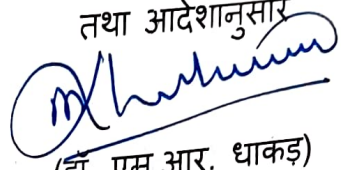 तथा आदेशानुसार
(डॉ. एम.आर. धाकड़)